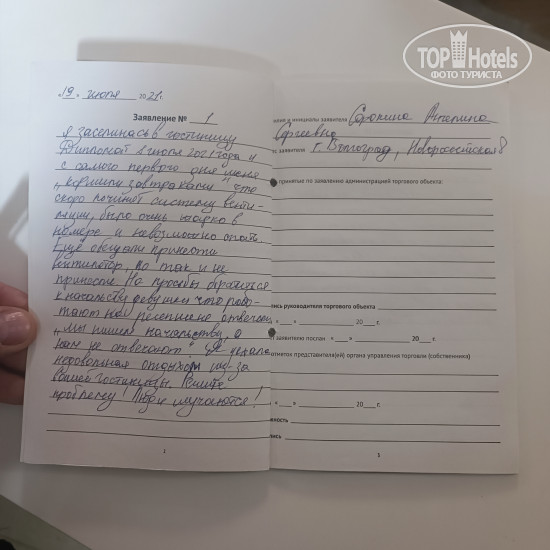 TOPHotels
ФОТО ТУРИСТА
19. июля 2021г.
Заявление № 1
Я заселилась в гостиницу
1 июля 2021 года и
с самого первого дня меня
„кормили завтраками" что
скоро починят систему венти-
ляции, было очень жарко в
номере и невозможно спать.
Ещё обещали принести
вентилятор, но так и не
принесли. На просьбы обратиться
к начальству девушки что рабо-
тают на отвечали
„Мы пишем начальству, а
нам не отвечают". Я уехала
недовольная отдыхом из-за
вашей гостиницы. Решите
проблему! Люди мучаются!
1
и инициалы заявителя Сорокина Ангелина
Сергеевна
заявителя г. Волгоград, Новороссийская 8
принятые по заявлению администрацией торгового объекта:
пись руководителя торгового объекта
« » 20 г.
заявителю послан « » 20 г.
отметок представителя(ей) органа управления торговли (собственника)
« » 20 г.
жность
пись
1